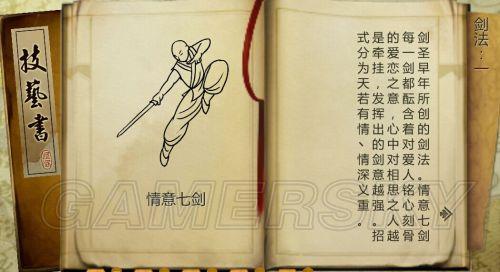 技藝書
情意七剑
剑法：一
剑圣早年所创的剑法。情意七剑
每一剑都酝含着对爱人铭心刻骨
的爱恋之意，心中对相思之人越
是牵挂，发挥出的剑意越强。招
式分为天若有情、情深义重。
GAMERSKY